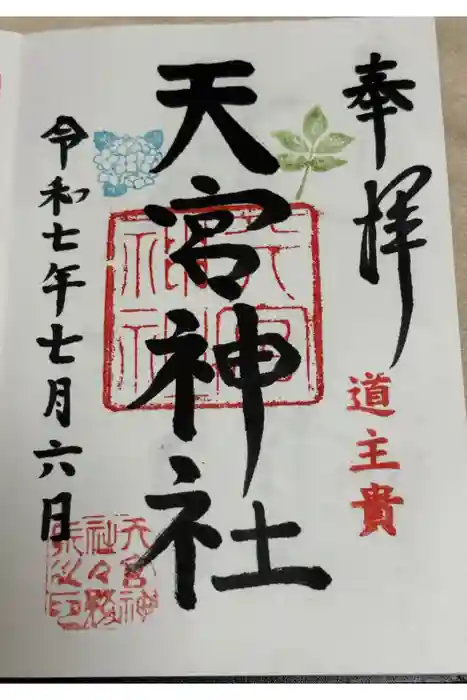 奉拝
道主貴
天宮神社
天宮神社
令和七年七月六日
天宮神社社務所之印